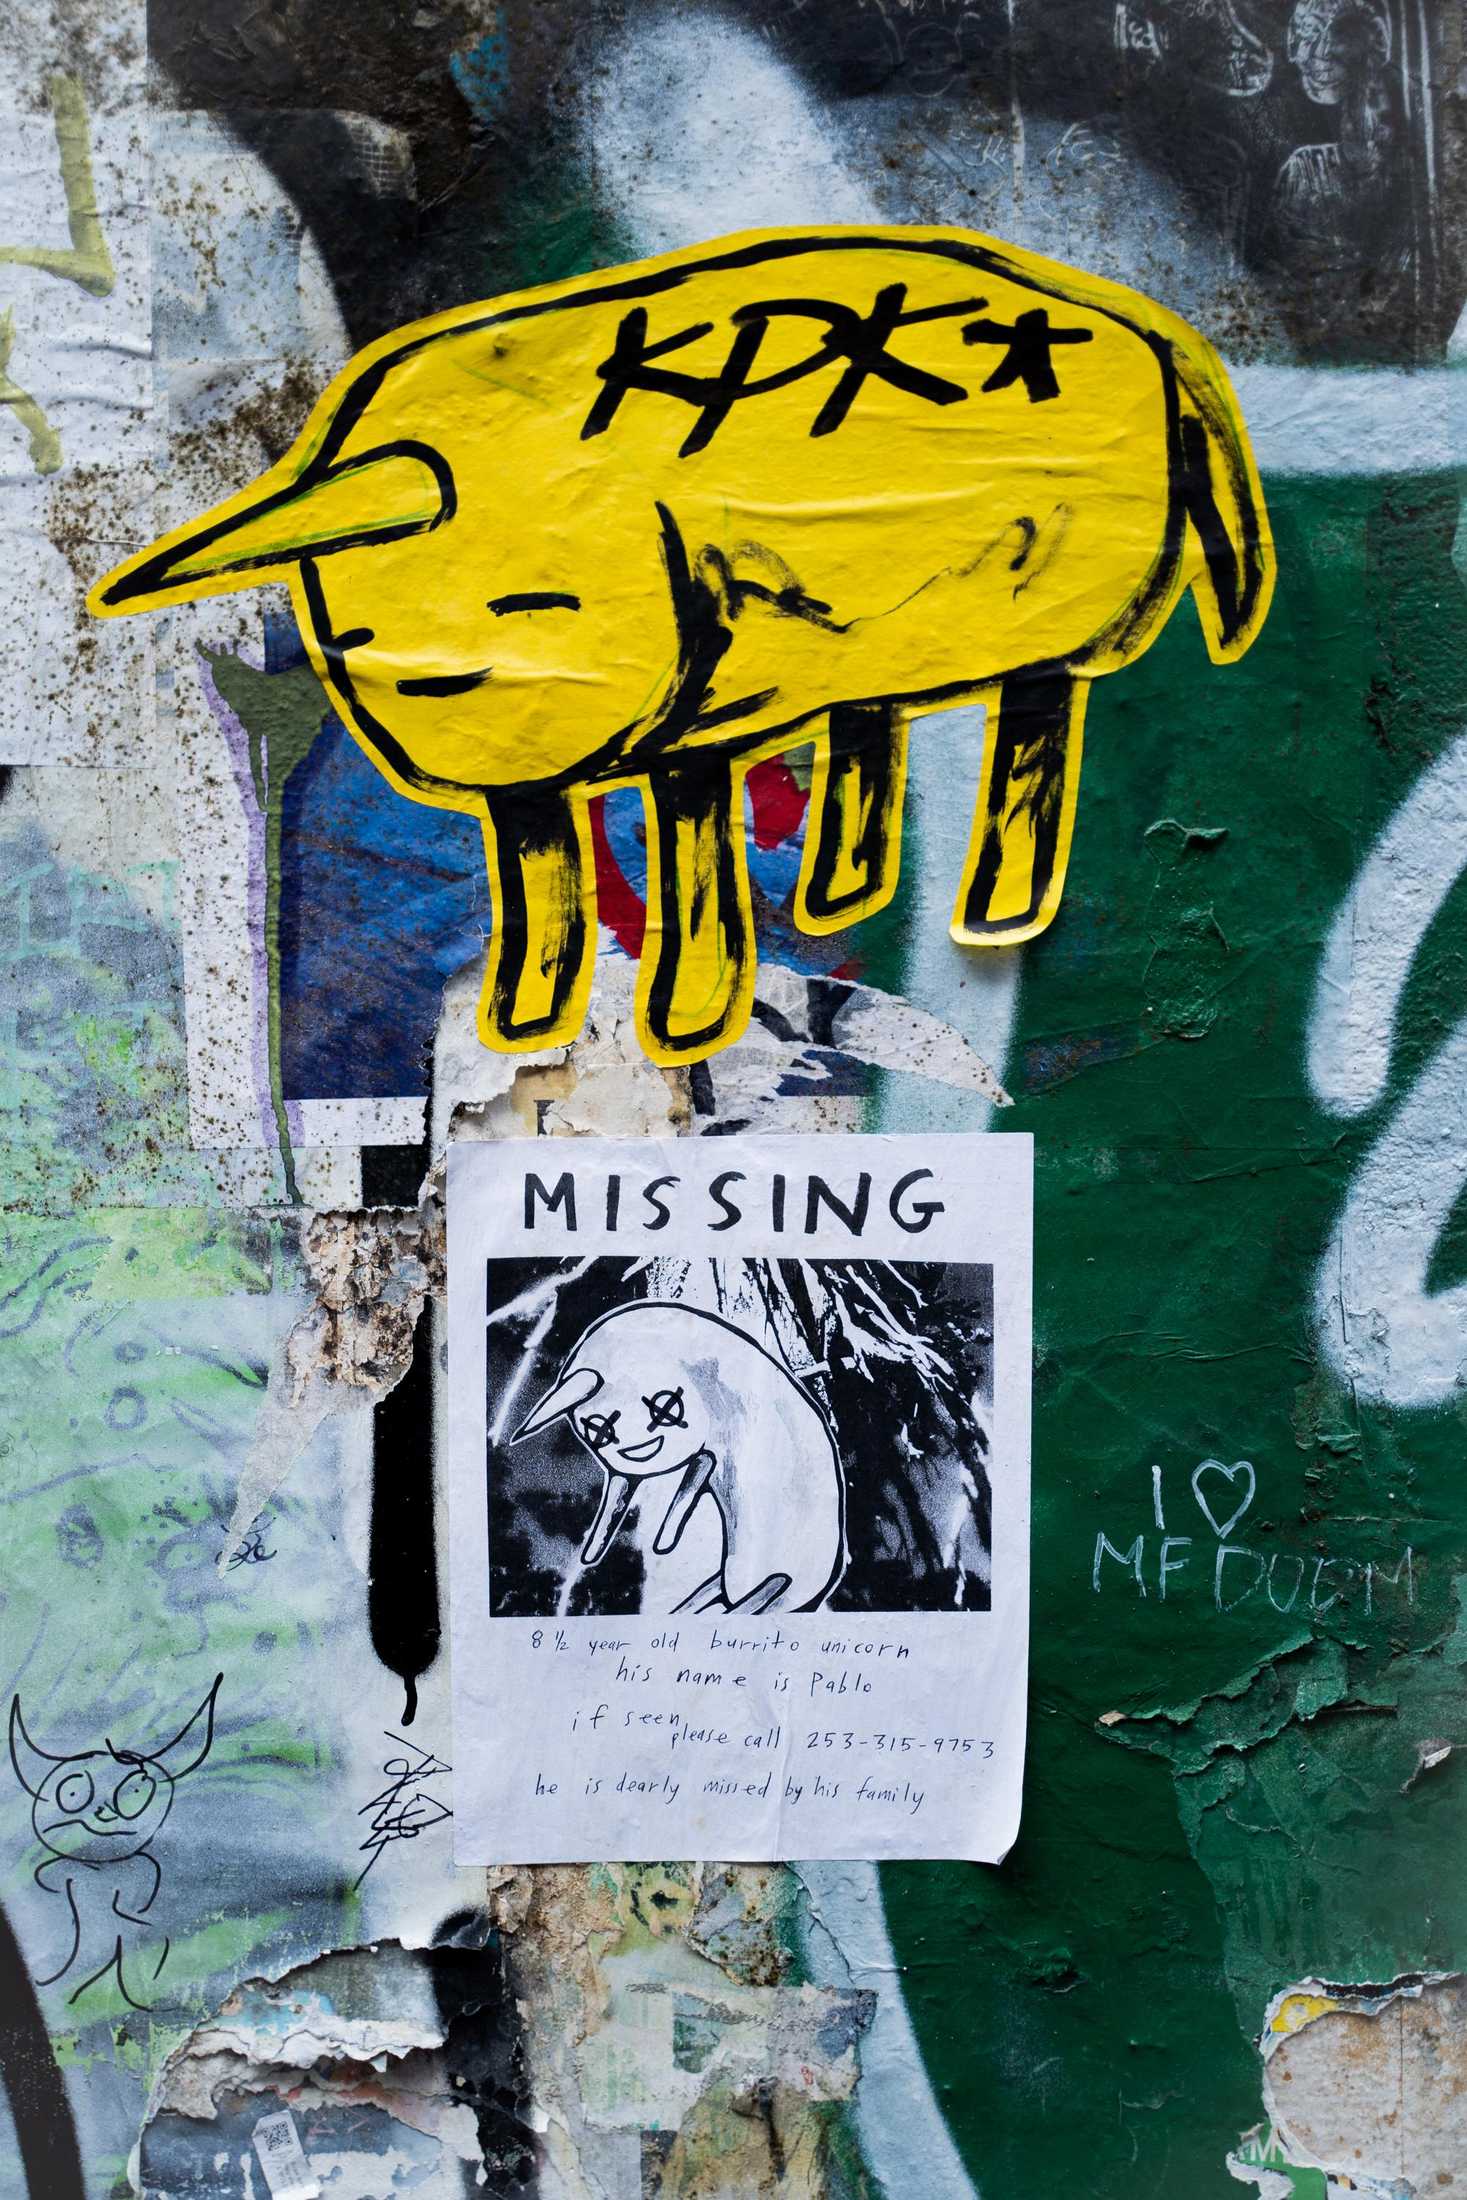 KPK*
MISSING
I ♡
MF DOOM
8 ½ year old burrito unicorn
his name is Pablo
if seen
please call 253-315-9753
he is dearly missed by his family